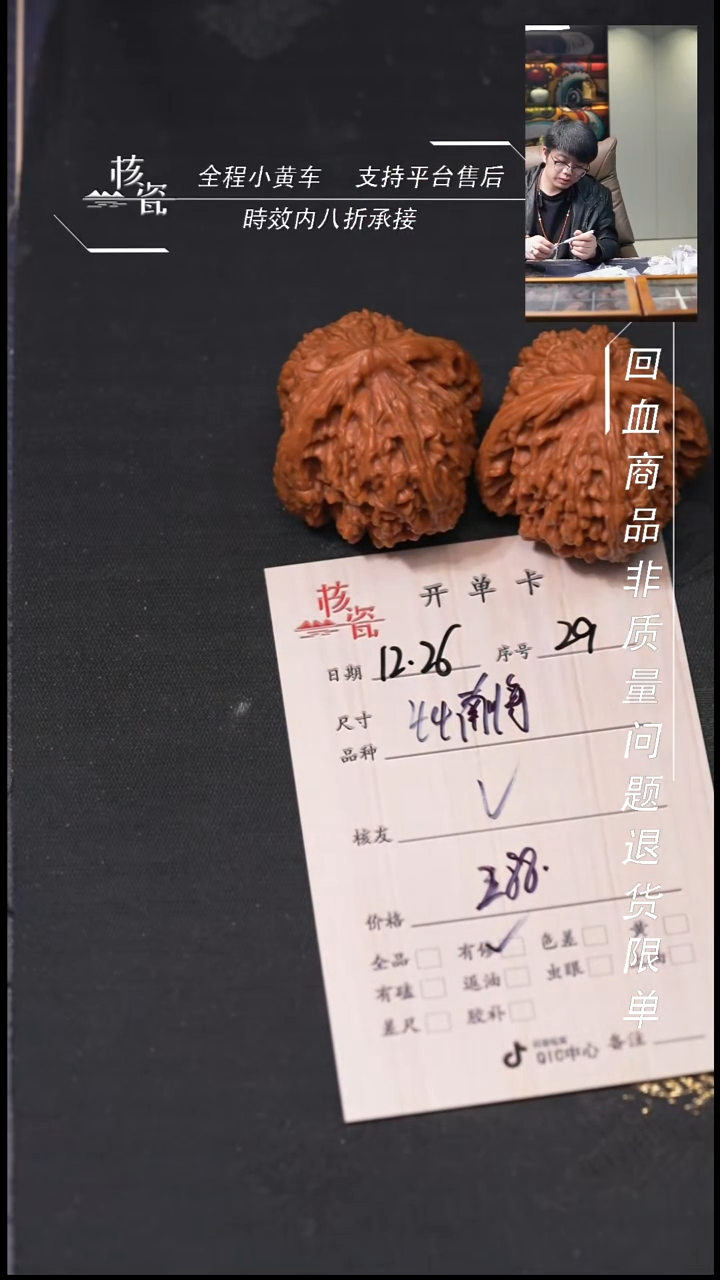 核瓷
全程小黄车 支持平台售后
時效内八折承接
回血商品非质量问题退货限单
核瓷 开单卡
日期 12.26 序号 29
尺寸 44南将
品种
核友
价格
全品 有修 色差 黄
有磕 返油 虫眼
差尺 胶补
QIC中心 备注